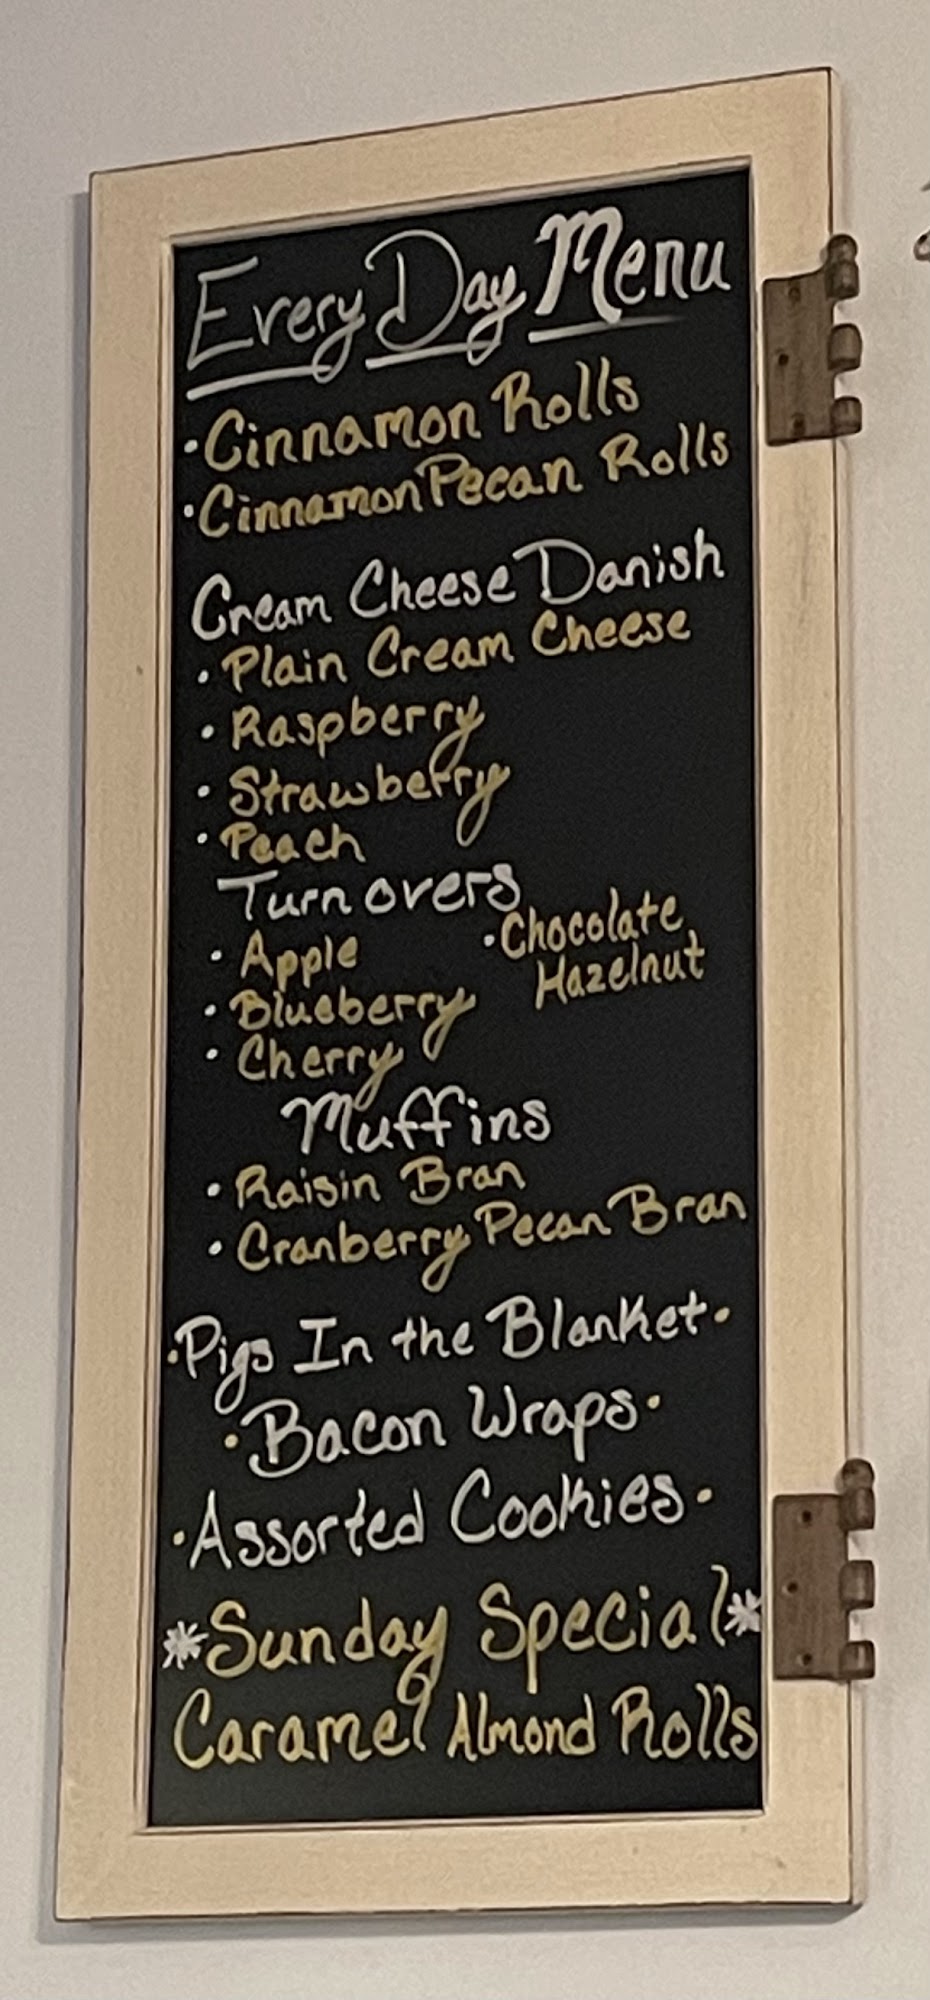 Every Day Menu
·Cinnamon Rolls
·Cinnamon Pecan Rolls
Cream Cheese Danish
·Plain Cream Cheese
·Raspberry
·Strawberry
·Peach
Turnovers
·Apple
·Blueberry
·Cherry
·Chocolate
Hazelnut
Muffins
·Raisin Bran
·Cranberry Pecan Bran
·Pigs In the Blanket·
·Bacon Wraps·
·Assorted Cookies·
*Sunday Special*
Caramel Almond Rolls